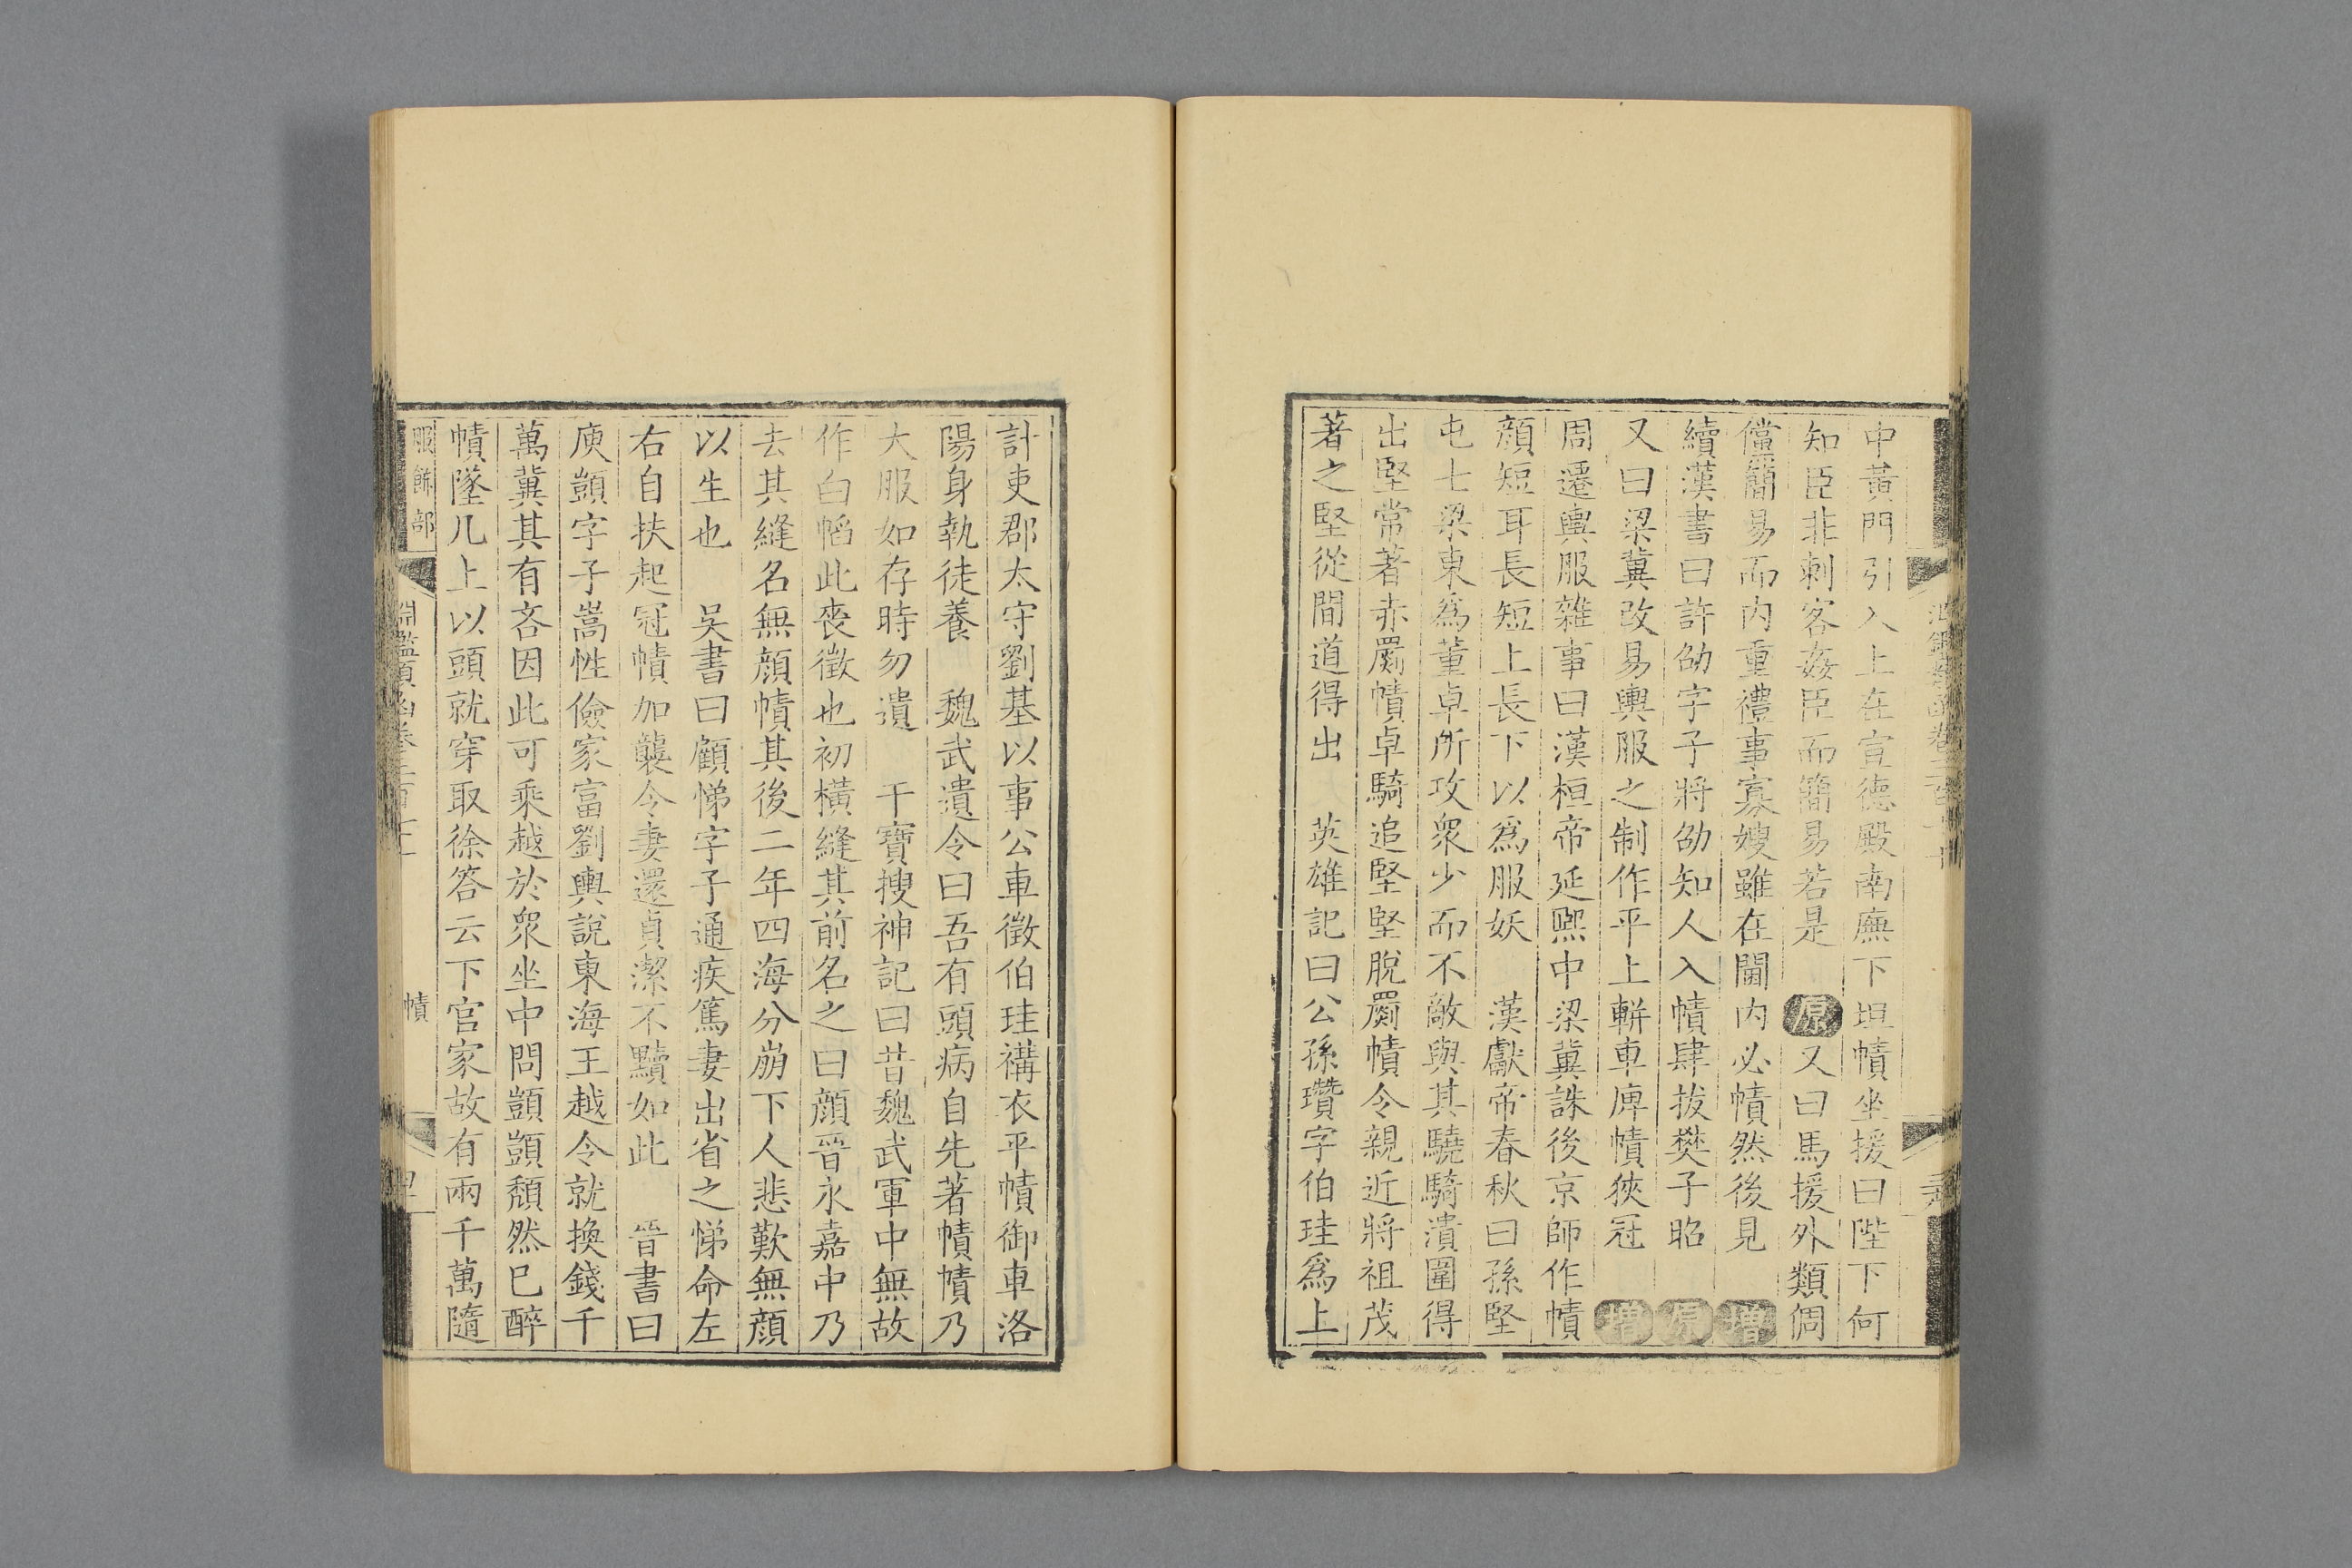 中黃門引入上在宣德殿南廡下坦幘坐援曰陛下何
知臣非刺客姦臣而簡易若是 原又曰馬援外類倜
儻簡易而内重禮事寡嫂雖在閫内必幘然後見 增
續漢書曰許劭字子將劭知人入幘肆拔樊子昭 原
又曰梁冀改易輿服之制作平上軿車庳幘狹冠 增
周遷輿服雜事曰漢桓帝延熙中梁冀誅後京師作幘
顔短耳長短上長下以爲服妖 漢獻帝春秋曰孫堅
屯七梁東爲董卓所攻衆少而不敵與其驍騎潰圍得
出堅常著赤罽幘卓騎追堅堅脫罽幘令親近將祖茂
著之堅從間道得出 英雄記曰公孫瓚字伯珪爲上
計吏郡太守劉基以事公車徵伯珪褠衣平幘御車洛
陽身執徒養 魏武遺令曰吾有頭病自先著幘幘乃
大服如存時勿遺 干寶搜神記曰昔魏武軍中無故
作白幍此喪徵也初橫縫其前名之曰顔晉永嘉中乃
去其縫名無顔幘其後二年四海分崩下人悲歎無顔
以生也 吳書曰顧悌字子通疾篤妻出省之悌命左
右自扶起冠幘加襲令妻還貞潔不黷如此 晉書曰
庾顗字子嵩性儉家富劉輿說東海王越令就換錢千
萬冀其有吝因此可乘越於衆坐中問顗顗頽然已醉
幘墜几上以頭就穿取徐答云下官家故有兩千萬隨
服飾部 淵鑑類函卷三百七十一 幘